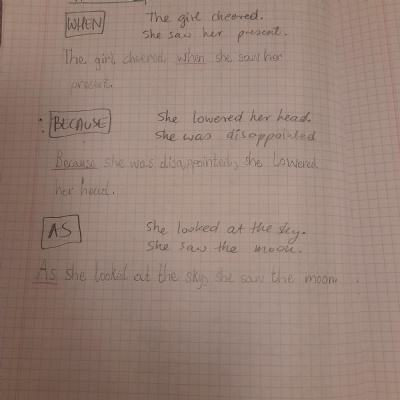 WHEN The girl cheered.
She saw her present.
The girl cheered when she saw her
present.
: BECAUSE She lowered her head.
She was disappointed
Because she was disappointed, she lowered
her head.
AS She looked at the sky.
She saw the moon.
As she looked at the sky, she saw the moon.